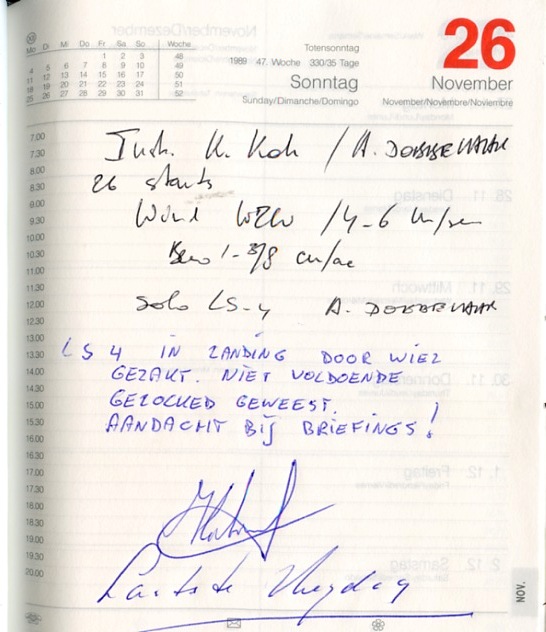 26
Totensonntag
1989 47. Woche 330/35 Tage
Sonntag
November
Sunday/Dimanche/Domingo
November/Novembre/Noviembre
Mo Di Mi Do Fr Sa So Woche
1 2 3 48
4 5 6 7 8 9 10 49
11 12 13 14 15 16 17 50
18 19 20 21 22 23 24 51
25 26 27 28 29 30 31 52
7.00
7.30
8.00
8.30
9.00
9.30
10.00
10.30
11.00
11.30
12.00
12.30
13.00
13.30
14.00
14.30
15.00
15.30
16.00
16.30
17.00
17.30
18.00
18.30
19.00
19.30
20.00
Instr. K. Kok / A. DOBBELAAR
26 starts
Wind WZW / 4-6 m/sec
1-3/8 cu/ac
Solo LS-4 A. DOBBELAAR
LS 4 IN LANDING DOOR WIEL
GEZAKT. NIET VOLDOENDE
GELOCKED GEWEEST.
AANDACHT BIJ BRIEFINGS!
Laatste vliegdag
NOV.